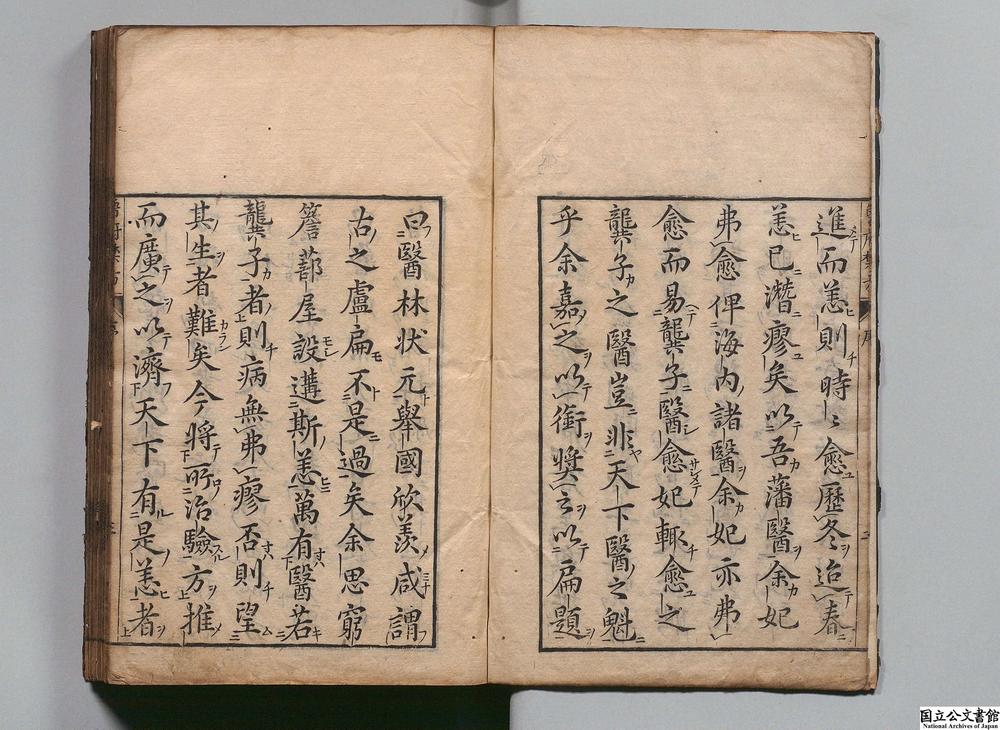 進而恙則時〻愈歷冬迨春
恙已潛瘳矣以吾藩醫余妃
弗愈俾海內諸醫余妃亦弗
愈而易龔子醫愈妃輙愈之
龔子之醫豈非天下醫之魁
乎余嘉之以銜奬云以扁題
曰醫林狀元舉國欣羡咸謂
古之盧扁不是過矣余思窮
簷蔀屋設遘斯恙萬有醫若
龔子者則病無弗瘳否則望
其生者難矣今將所治驗方推
而廣之以濟天下有是恙者
国立公文書館
National Archives of Japan